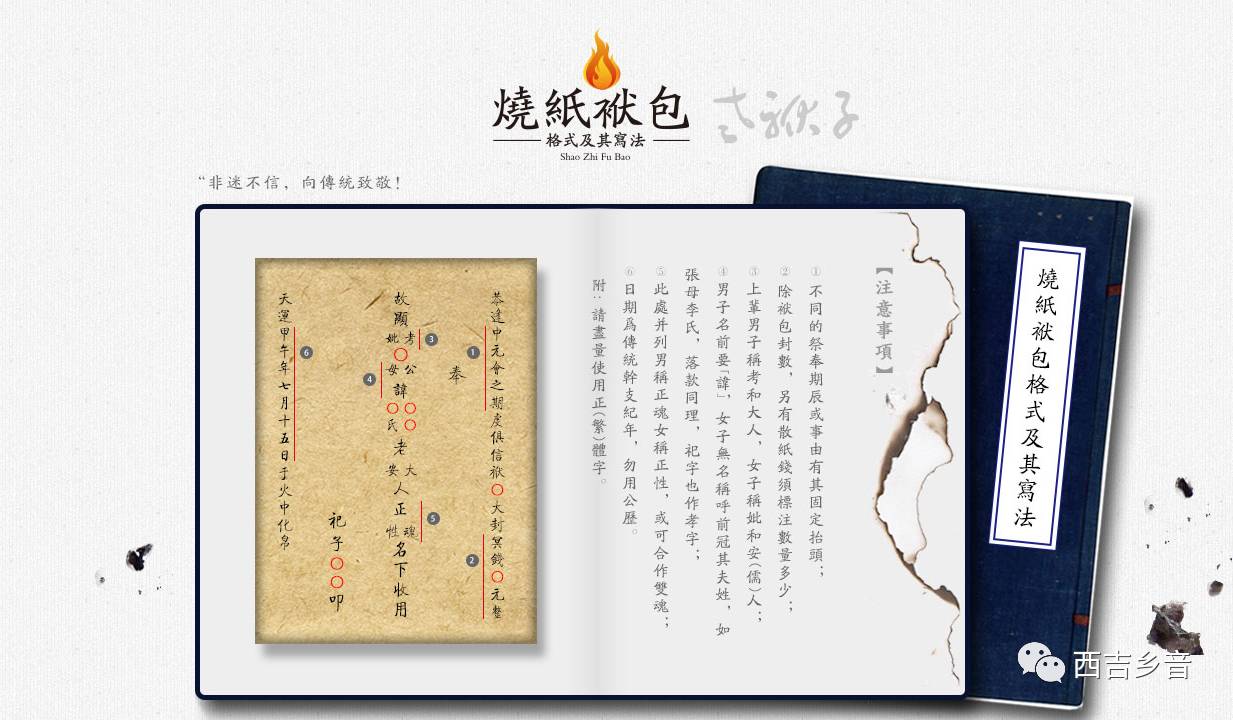 燒紙袱包
格式及其寫法
Shao Zhi Fu Bao
“非迷不信，向傳統致敬！
【注意事項】
①不同的祭奉期辰或事由有其固定抬頭；
②除袱包封數，另有散紙錢須標注數量多少；
③上輩男子稱考和大人，女子稱妣和安（儒）人；
④男子名前要「諱」，女子無名稱呼前冠其夫姓，如
張母李氏，落款同理，祀字也作孝字；
⑤此處并列男稱正魂女稱正性，或可合作雙魂；
⑥日期爲傳統幹支紀年，勿用公歷。
附：請盡量使用正（繁）體字。
恭逢中元會之期虔俱信袱〇大封冥錢〇元整
①
②
奉
故顯考妣〇公母諱〇〇〇氏老大安人正魂性名下收用
③
④
⑤
祀子〇〇叩
天運甲午年七月十五日于火中化帛
⑥
燒紙袱包格式及其寫法
西吉乡音